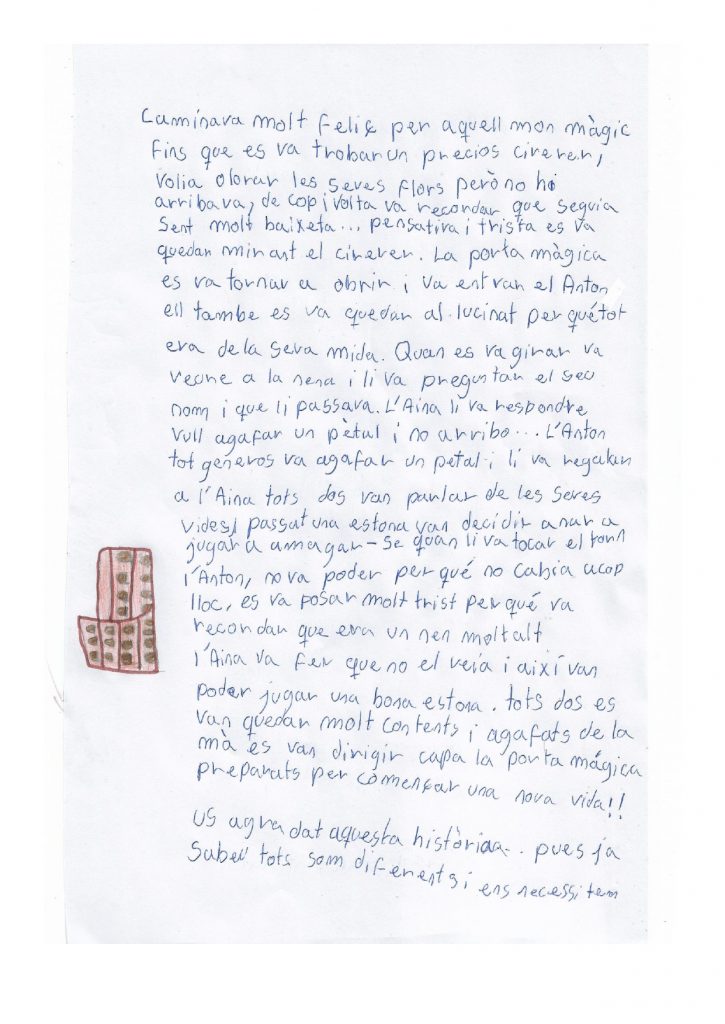 Caminava molt feliç per aquell mon màgic
fins que es va trobar un precios cirerer,
volia olorar les seves flors però no hi
arribava, de cop i volta va recordar que seguia
sent molt baixeta... pensativa i trista es va
quedar mirant el cirerer. La porta màgica
es va tornar a obrir i va entrar el Anton
ell tambe es va quedar al.lucinat per qué tot
era de la seva mida. Quan es va girar va
veure a la nena i li va preguntar el seu
nom i que li passava. L'Aina li va respondre
vull agafar un pètal i no arribo... L'Anton
tot generos va agafar un petal i li va regalar
a l'Aina tots dos van parlar de les seves
vides, passat una estona van decidir anar a
jugar a amagar-se quan li va tocar el torn
l'Anton, no va poder per qué no cabia acap
lloc, es va posar molt trist per qué va
recordar que era un nen molt alt
l'Aina va fer que no el veia i així van
poder jugar una bona estona. tots dos es
van quedar molt contents i agafats de la
mà es van dirigir capa la porta mágica
preparats per començar una nova vida!!
us agradat aquesta històriaa.. pues ja
sabeu tots som diferents i ens necessitem